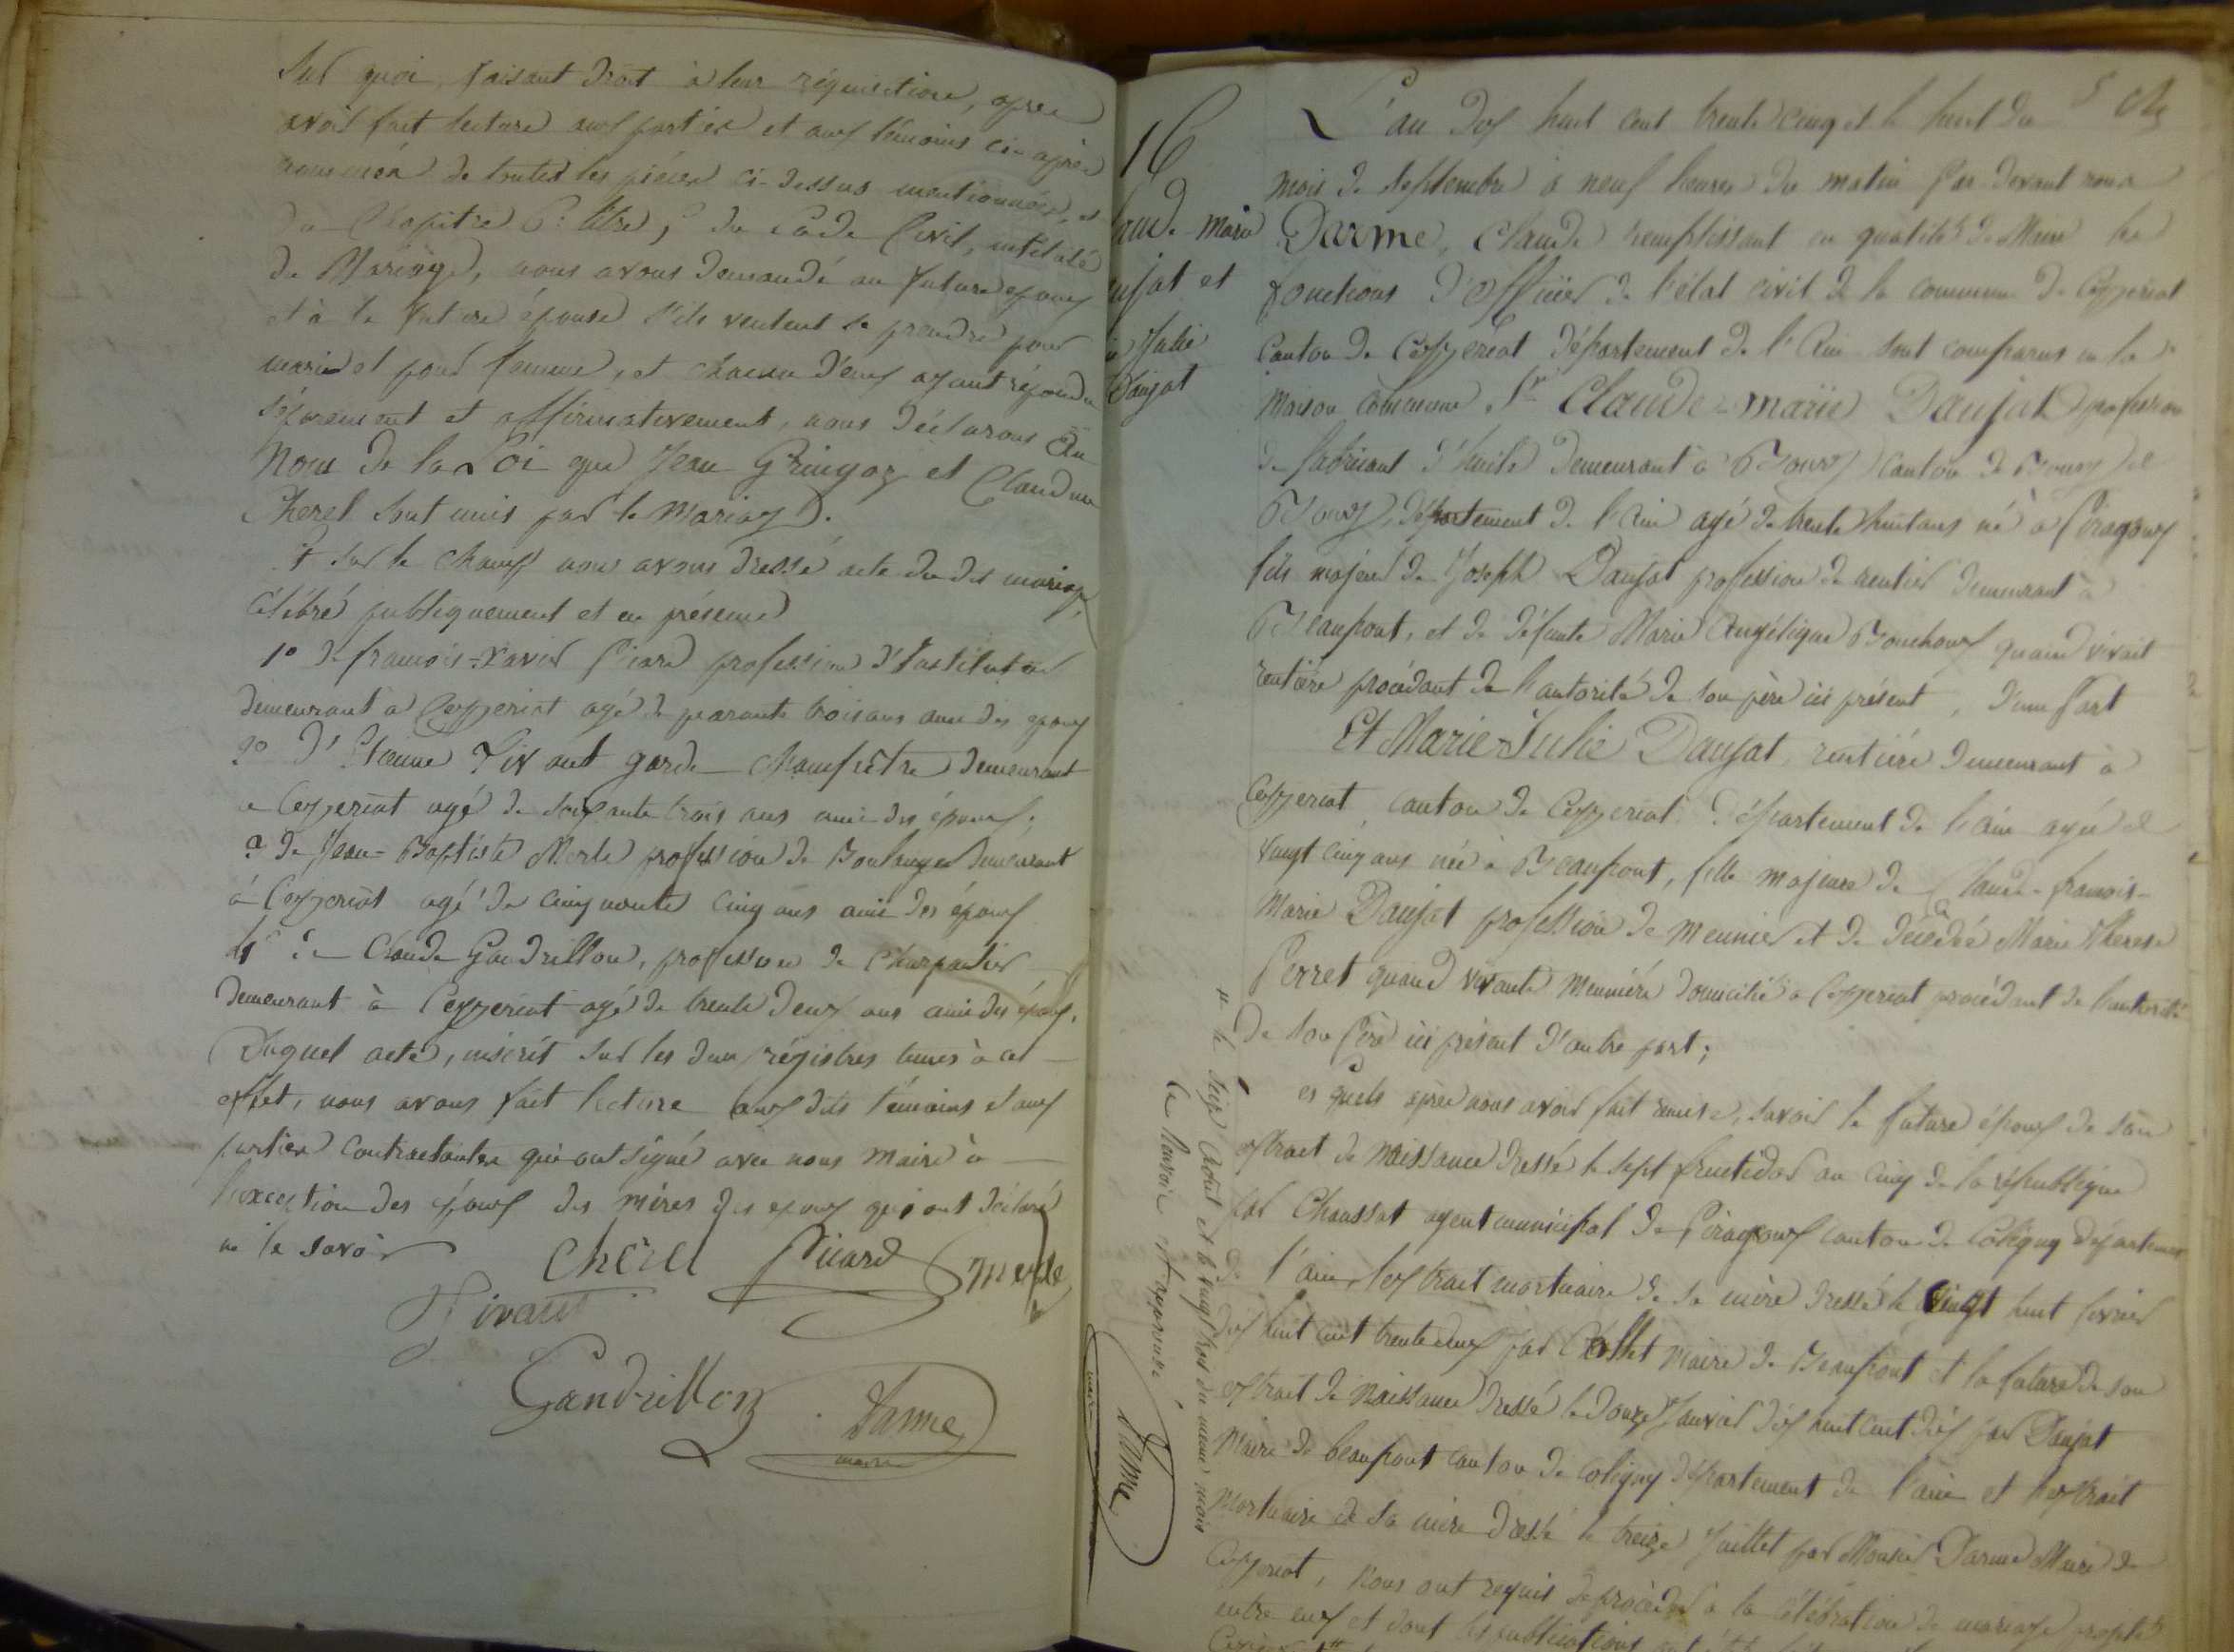 Sur quoi, faisant droit à leur réquisition, après
avoir fait lecture aux parties et aux témoins ci-après
nommés de toutes les pièces ci-dessus mentionnées, et
du Chapitre 6e titre 5 du Code Civil, intitulé
du Mariage, nous avons demandé au future epoux
et à la future épouse s'ils veulent se prendre pour
marie et pour femme, et chacun d'eux ayant répondu
séparement et affirmativement, nous déclarons Au
Nom de la Loi que Jean Gringoz et Claudine
Cherel sont unis par le Mariage.
Sur le champ nous avons dressé acte du dit mariage,
célébré publiquement et en présence
1° De francois-Xavier Picard profession d'Instituteur
demeurant à Ceyzeriat agé de quarante trois ans ami des epoux
2° d'Etienne Vivant garde-champêtre demeurant
a Ceyzeriat agé de soixante trois ans ami des époux;
3° de Jean-Baptiste Merle profession de Boulanger demeurant
à Ceyzeriat agé de cinquante cinq ans ami des époux
4° de Claude Gandrillon, profession de Charpentier
demeurant à Ceyzeriat agé de trente deux ans ami des époux.
Duquel acte, inscrit sur les deux régistres tenus à cet
effet, nous avons fait lecture aux dits témoins et aux
parties contractantes qui ont signé avec nous Maire à
l'exception des époux des mères des epoux qui ont déclaré
ne le savoir
Cherel Picard Merle
Vivant
Gandrillon Darme
maire
16
Claude marie
Daujat et
Marie Julie
Daujat
L'an dix huit cent trente cinq et le huit du
mois de Septembre à neuf heures du matin Par-devant nous
Darme, Claude remplissant en qualité de Maire les
fonctions d'Officier de l'état civil de la commune de Ceyzeriat
Canton de Ceyzeriat département de l'Ain sont comparus en la
Maison Commune, Sr Claude-marie Daujat profession
de fabricant d'huile demeurant à Bourg canton de Bourg
Bourg, département de l'Ain agé de trente huit ans né à Pirajoux
fils majeur de Joseph Daujat profession de rentier demeurant à
Beaupont, et de défunte Marie Angélique Bouchoux quand vivait
rentière procédant de l'autorité de son père ici présent, d'une part
Et Marie-Julie Daujat, rentière demeurant à
Ceyzeriat, canton de Ceyzeriat département de l'ain agée de
vingt cinq ans née à Beaupont, fille majeure de Claude-francois-
Marie Daujat profession de meunier et de décédée Marie Therese
Perret quand vivante meunière domicilié à Ceyzeriat procédant de l'autorité
de son Père ici présent d'autre part;
es quels après nous avoir fait remise, savoir le future époux de son
extrait de naissance dressé le sept fructidor an cinq de la république
par Chaussat agent municipal de Pirajoux canton de Coligny département
de l'ain, l'extrait mortuaire de sa mère dressé le vingt huit fevrier
dix huit cent trente deux par Collet Maire de Beaupont et la future de son
extrait de Naissance dressé le douze Janvier dix huit cent dix par Daujat
Maire de beaupont canton de Coligny département de l'ain et l'extrait
Mortuaire de sa mère dressé le treize Juillet par Monsieur Darme Maire de
Ceyzeriat, Nous ont requis de procéder à la célébration de mariage projeté
entre eux et dont les publications
le seize Aout et le vingt trois du meme mois
Le Renvoi est approuvé
Darme
maire